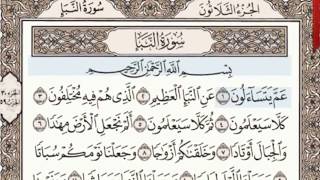 الجزء الثلاثون
سورة النبإ
سُورَةُ النَّبَإِ
بِسْمِ اللَّهِ الرَّحْمَٰنِ الرَّحِيمِ
عَمَّ يَتَسَاءَلُونَ ١ عَنِ النَّبَإِ الْعَظِيمِ ٢ الَّذِي هُمْ فِيهِ مُخْتَلِفُونَ ٣
كَلَّا سَيَعْلَمُونَ ٤ ثُمَّ كَلَّا سَيَعْلَمُونَ ٥ أَلَمْ نَجْعَلِ الْأَرْضَ مِهَادًا ٦
وَالْجِبَالَ أَوْتَادًا ٧ وَخَلَقْنَاكُمْ أَزْوَاجًا ٨ وَجَعَلْنَا نَوْمَكُمْ سُبَاتًا